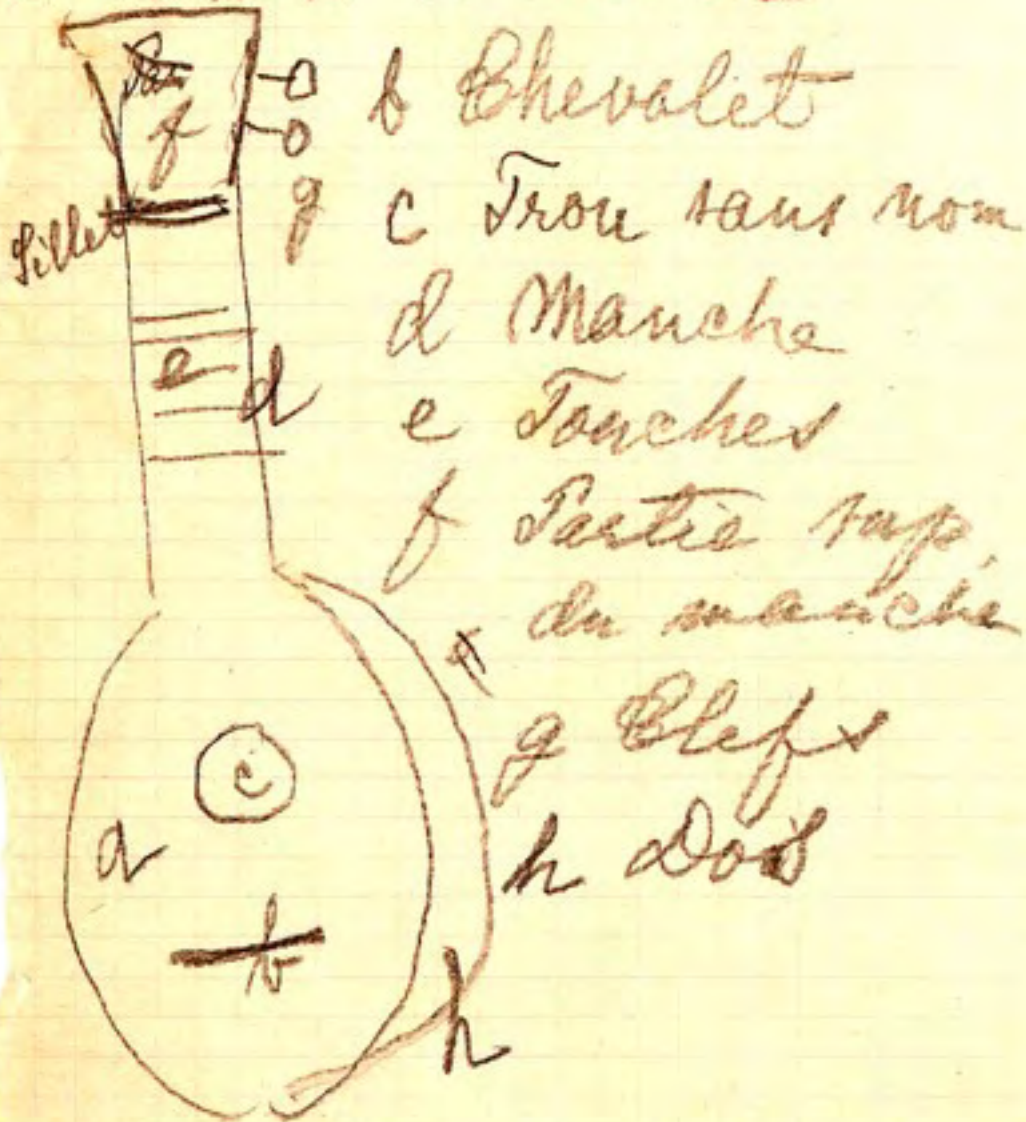 f
Sillet
g
e
d
c
a
b
h
b Chevalet
c Trou sans nom
d Manche
e Touches
f Partie sup.
du manche
g Clefs
h Dos